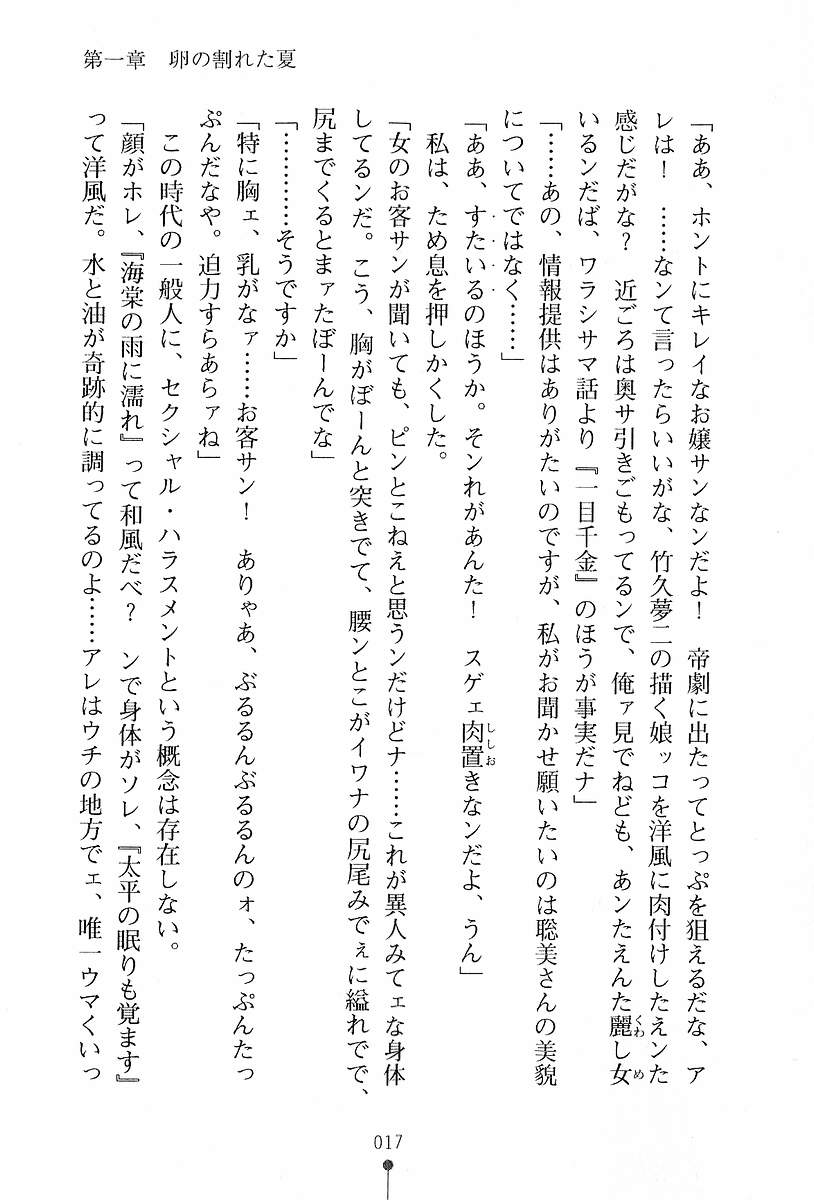 第一章　卵の割れた夏
「ああ、ホントにキレイなお嬢サンなンだよ！　帝劇に出たってとっぷを狙えるだな、ア
レは！　……なンて言ったらいいがな、竹久夢二の描く娘ッコを洋風に肉付けしたえンた
感じだがな？　近ごろは奥サ引きごもってるンで、俺ァ見でねども、あンたえんた麗し女
いるンだば、ワラシサマ話より『一目千金』のほうが事実だナ」
「……あの、情報提供はありがたいのですが、私がお聞かせ願いたいのは聡美さんの美貌
についてではなく……」
「ああ、すたいるのほうか。そンれがあんた！　スゲェ肉置きなンだよ、うん」
　私は、ため息を押しかくした。
「女のお客サンが聞いても、ピンとこねえと思うンだけどナ……これが異人みてェな身体
してるンだ。こう、胸がぼーんと突きでて、腰ンとこがイワナの尻尾みでぇに縊れでで、
尻までくるとまァたぼーんでな」
「…………そうですか」
「特に胸ェ、乳がなァ……お客サン！　ありゃあ、ぶるるんぶるるんのォ、たっぷんたっ
ぷんだなや。迫力すらあらァね」
　この時代の一般人に、セクシャル・ハラスメントという概念は存在しない。
「顔がホレ、『海棠の雨に濡れ』って和風だべ？　ンで身体がソレ、『太平の眠りも覚ます』
って洋風だ。水と油が奇跡的に調ってるのよ……アレはウチの地方でェ、唯一ウマくいっ
017